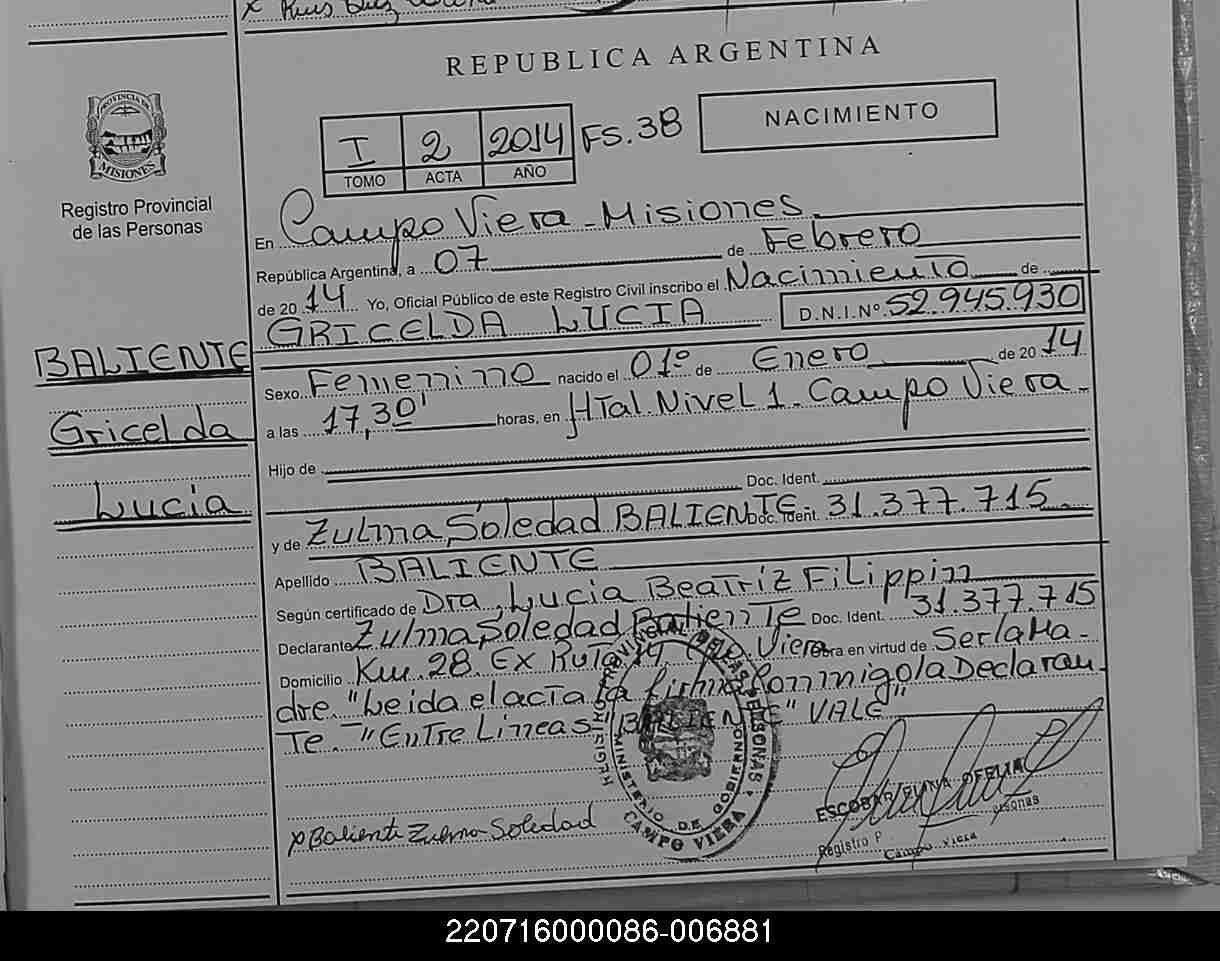 REPUBLICA ARGENTINA
PROVINCIA DE
MISIONES
Registro Provincial
de las Personas
I 2 2014 FS. 38
TOMO ACTA AÑO
NACIMIENTO
En Campo Viera - Misiones
República Argentina, a 07 de Febrero
de 2014 Yo, Oficial Público de este Registro Civil inscribo el Nacimiento de
GRICELDA LUCIA D.N.I.Nº 52.945.930
BALIENTE
Gricelda
Lucia
Sexo Femenino nacido el 01º de Enero de 2014
a las 17,30' horas, en HTal. Nivel 1 - Campo Viera -
Hijo de
Doc. Ident.
y de Zulma Soledad BALIENTE - Doc. Ident. 31.377.715
Apellido BALIENTE
Según certificado de Dra, Lucia Beatriz Filippin
Declarante Zulma Soledad BalienTe Doc. Ident. 31.377.715
Domicilio Km. 28. Ex RuTa 14 Viera Obra en virtud de Ser la Ma-
dre. "Leida el acta la firma Conmigo la Declaran-
Te. "EnTre Lineas "BALIENTE" VALE"
REGISTRO PROVINCIAL DE LAS PERSONAS
MINISTERIO DE GOBIERNO
CAMPO VIERA
ESCOBAR ELINA OFELIA
Registro P
Campo Viera
x Baliente Zulma Soledad
220716000086-006881